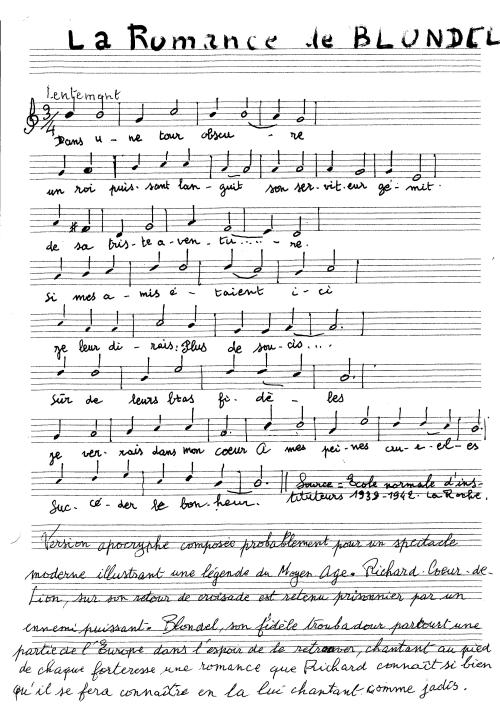 La Romance de BLONDEL
Lentement
3/4
Dans u - ne tour obscu - re
un roi puis- sant lan - guit son ser - vit - eur gé - mit.
de sa tris - te a - ven - tu..... - re.
Si mes a - mis é - taient i - ci
je leur di - rais: Plus de sou - cis....
Sûr de leurs bras fi - dè - les
je ver - rais dans mon coeur A mes pei - nes cru - e - el - es
Suc - cé - der le bon - heur.
Source = Ecole normale d'ins-
tituteurs 1939-1942. La Roche.
Version apocryphe composée probablement pour un spectacle
moderne illustrant une légende du Moyen Age. Richard-Coeur-de-
Lion, sur son retour de croisade est retenu prisonnier par un
ennemi puissant. Blondel, son fidèle troubadour parcourt une
partie de l'Europe dans l'espoir de le retrouver, chantant au pied
de chaque forteresse une romance que Richard connaît si bien
qu'il se fera connaître en la lui chantant comme jadis.